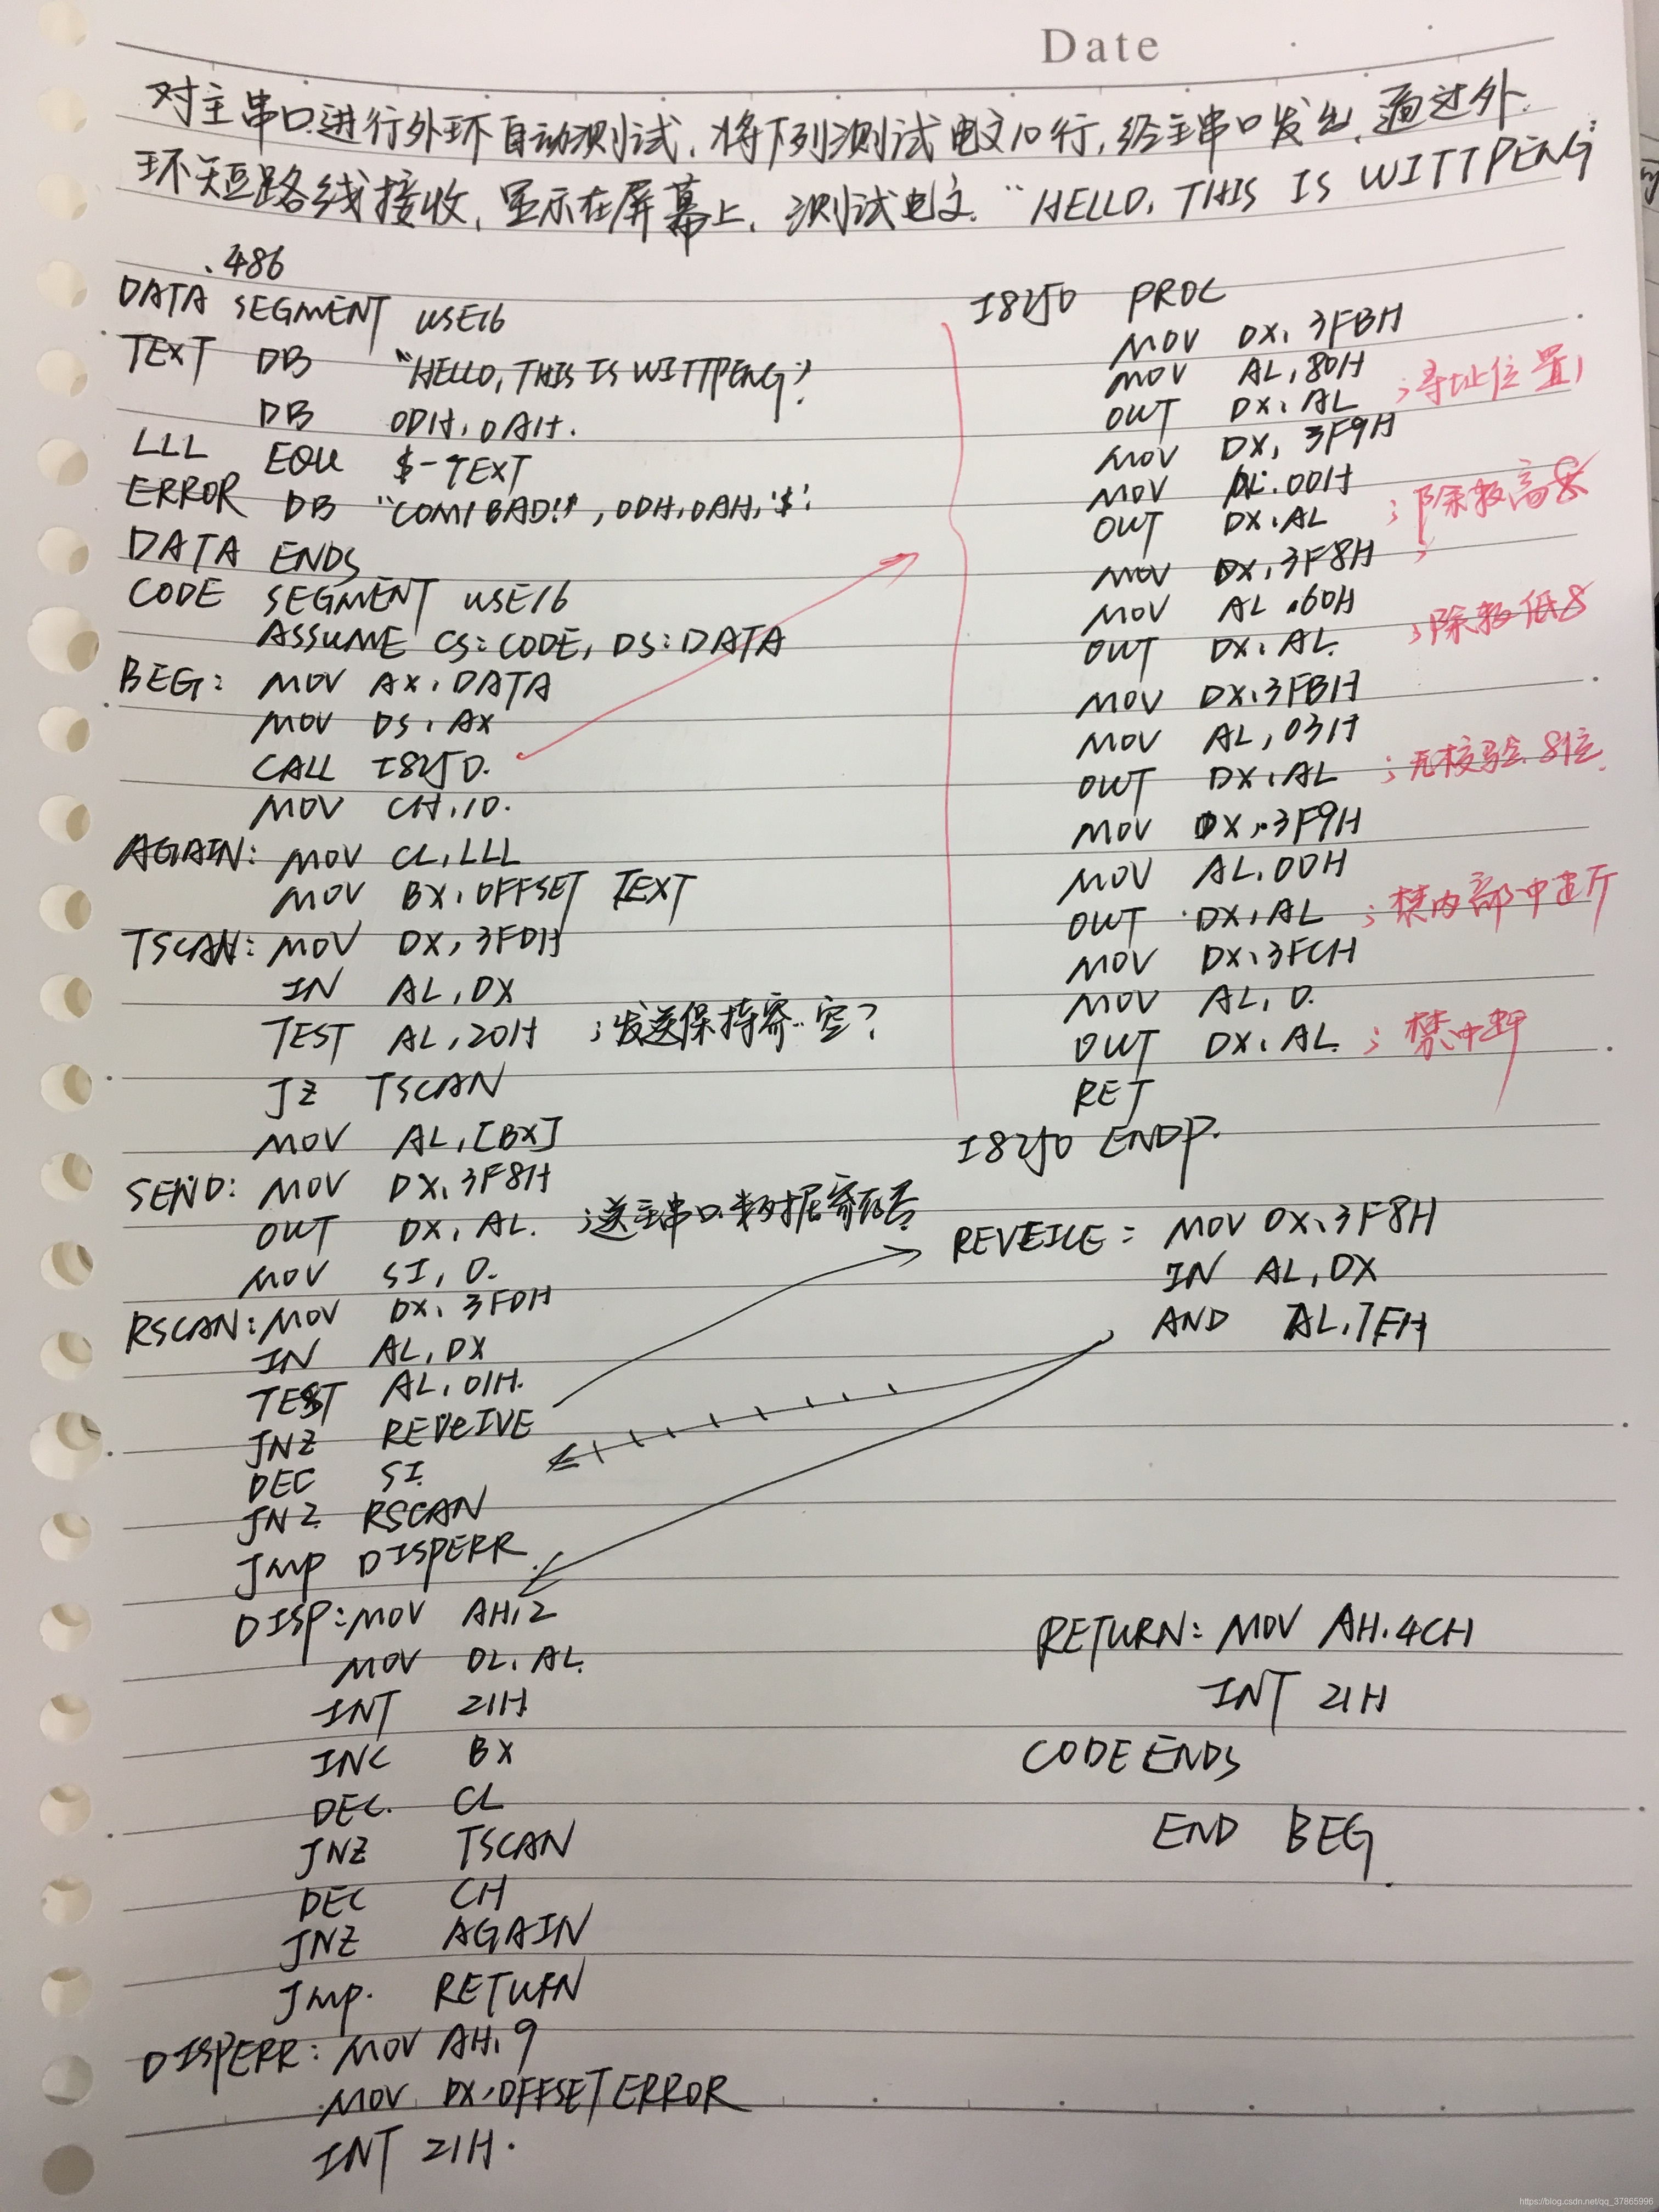 Date
对主串口进行外环自动测试,将下列测试电文10行,经主串口发出,通过外
环短路线接收,显示在屏幕上,测试电文."HELLO, THIS IS WITTPENG"
.486
DATA SEGMENT USE16
TEXT DB "HELLO, THIS IS WITTPENG"
DB 0DH, 0AH.
LLL EQU $-TEXT
ERROR DB "COM1 BAD!", 0DH, 0AH, '$'
DATA ENDS
CODE SEGMENT USE16
ASSUME CS:CODE, DS:DATA
BEG: MOV AX, DATA
MOV DS, AX
CALL I8250.
MOV CH, 10.
AGAIN: MOV CL, LLL
MOV BX, OFFSET TEXT
TSCAN: MOV DX, 3FDH
IN AL, DX
TEST AL, 20H ;发送保持寄..空?
JZ TSCAN
MOV AL, [BX]
SEND: MOV DX, 3F8H
OUT DX, AL. ;送主串口数据寄存器
MOV SI, 0.
RSCAN: MOV DX, 3FDH
IN AL, DX
TEST AL, 01H.
JNZ REVEIVE
DEC SI.
JNZ RSCAN
JMP DISPERR
DISP: MOV AH, 2
MOV DL, AL.
INT 21H
INC BX
DEC. CL
JNZ TSCAN
DEC CH
JNZ AGAIN
Jmp. RETURN
DISPERR: MOV AH, 9
MOV DX, OFFSET ERROR
INT 21H.
I8250 PROC
MOV DX, 3FBH
MOV AL, 80H
OUT DX, AL ;寻址位置1
MOV DX, 3F9H
MOV AL, 00H
OUT DX, AL ;除数高8
MOV DX, 3F8H ;
MOV AL, 60H
OUT DX, AL. ;除数低8
MOV DX, 3FBH
MOV AL, 03H
OUT DX, AL ;无校验.8位.
MOV DX, 3F9H
MOV AL, 00H
OUT DX, AL ;禁内部中断
MOV DX, 3FCH
MOV AL, 0.
OUT DX, AL. ;禁中断
RET
I8250 ENDP.
REVEICE: MOV DX, 3F8H
IN AL, DX
AND AL, 7FH
RETURN: MOV AH, 4CH
INT 21H
CODE ENDS
END BEG.
https://blog.csdn.net/qq_37865996